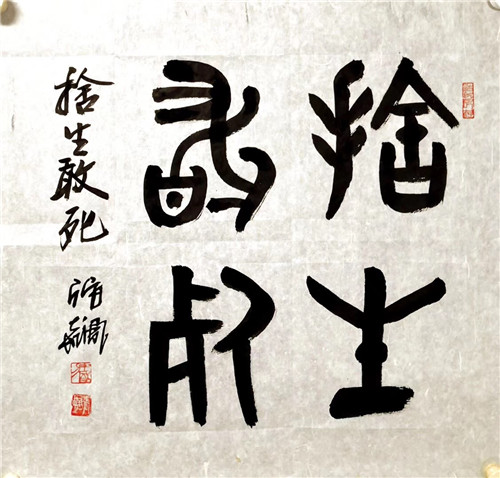 捨生
敢死
捨生敢死